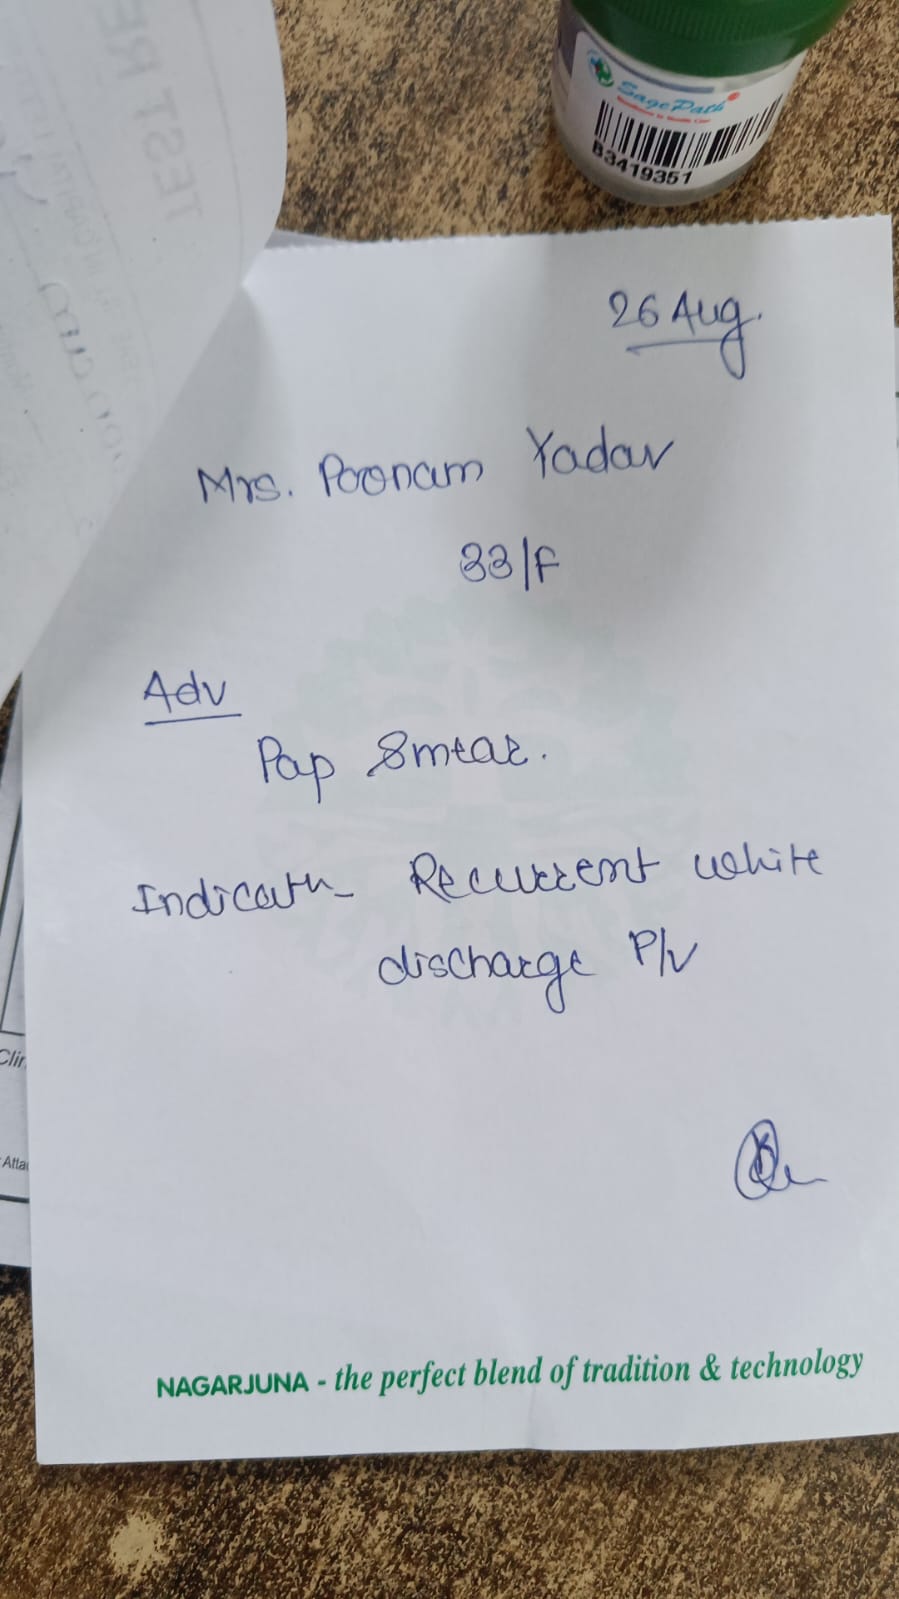 TEST RE
SagePath
B3419351
26 Aug.
Mrs. Poonam Yadav
33/F
Adv
Pap Smear.
Indicatn- Recurrent white
discharge P/v
Clin
Atta
NAGARJUNA - the perfect blend of tradition & technology